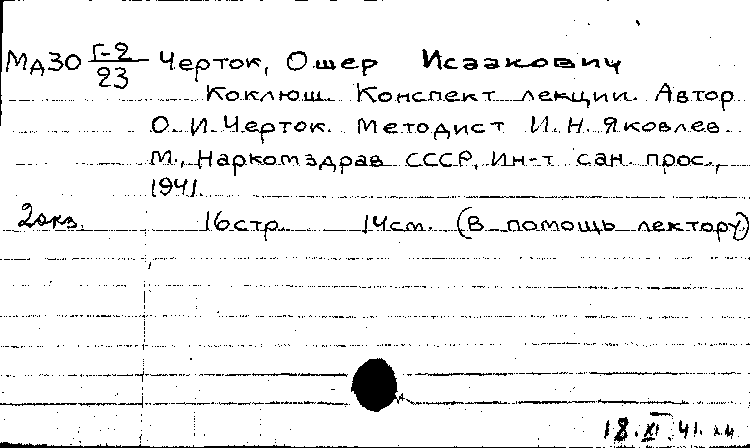 МдЗО Г-2/23 Черток, Ошер Исаакович
Коклюш. Конспект лекции. Автор
О. И. Черток. Методист И. Н. Яковлев.
М., Наркомздрав СССР, Ин-т сан. прос.,
1941.
2 экз. 16 стр. 14 см. (В помощь лектору)
18.XI.41.